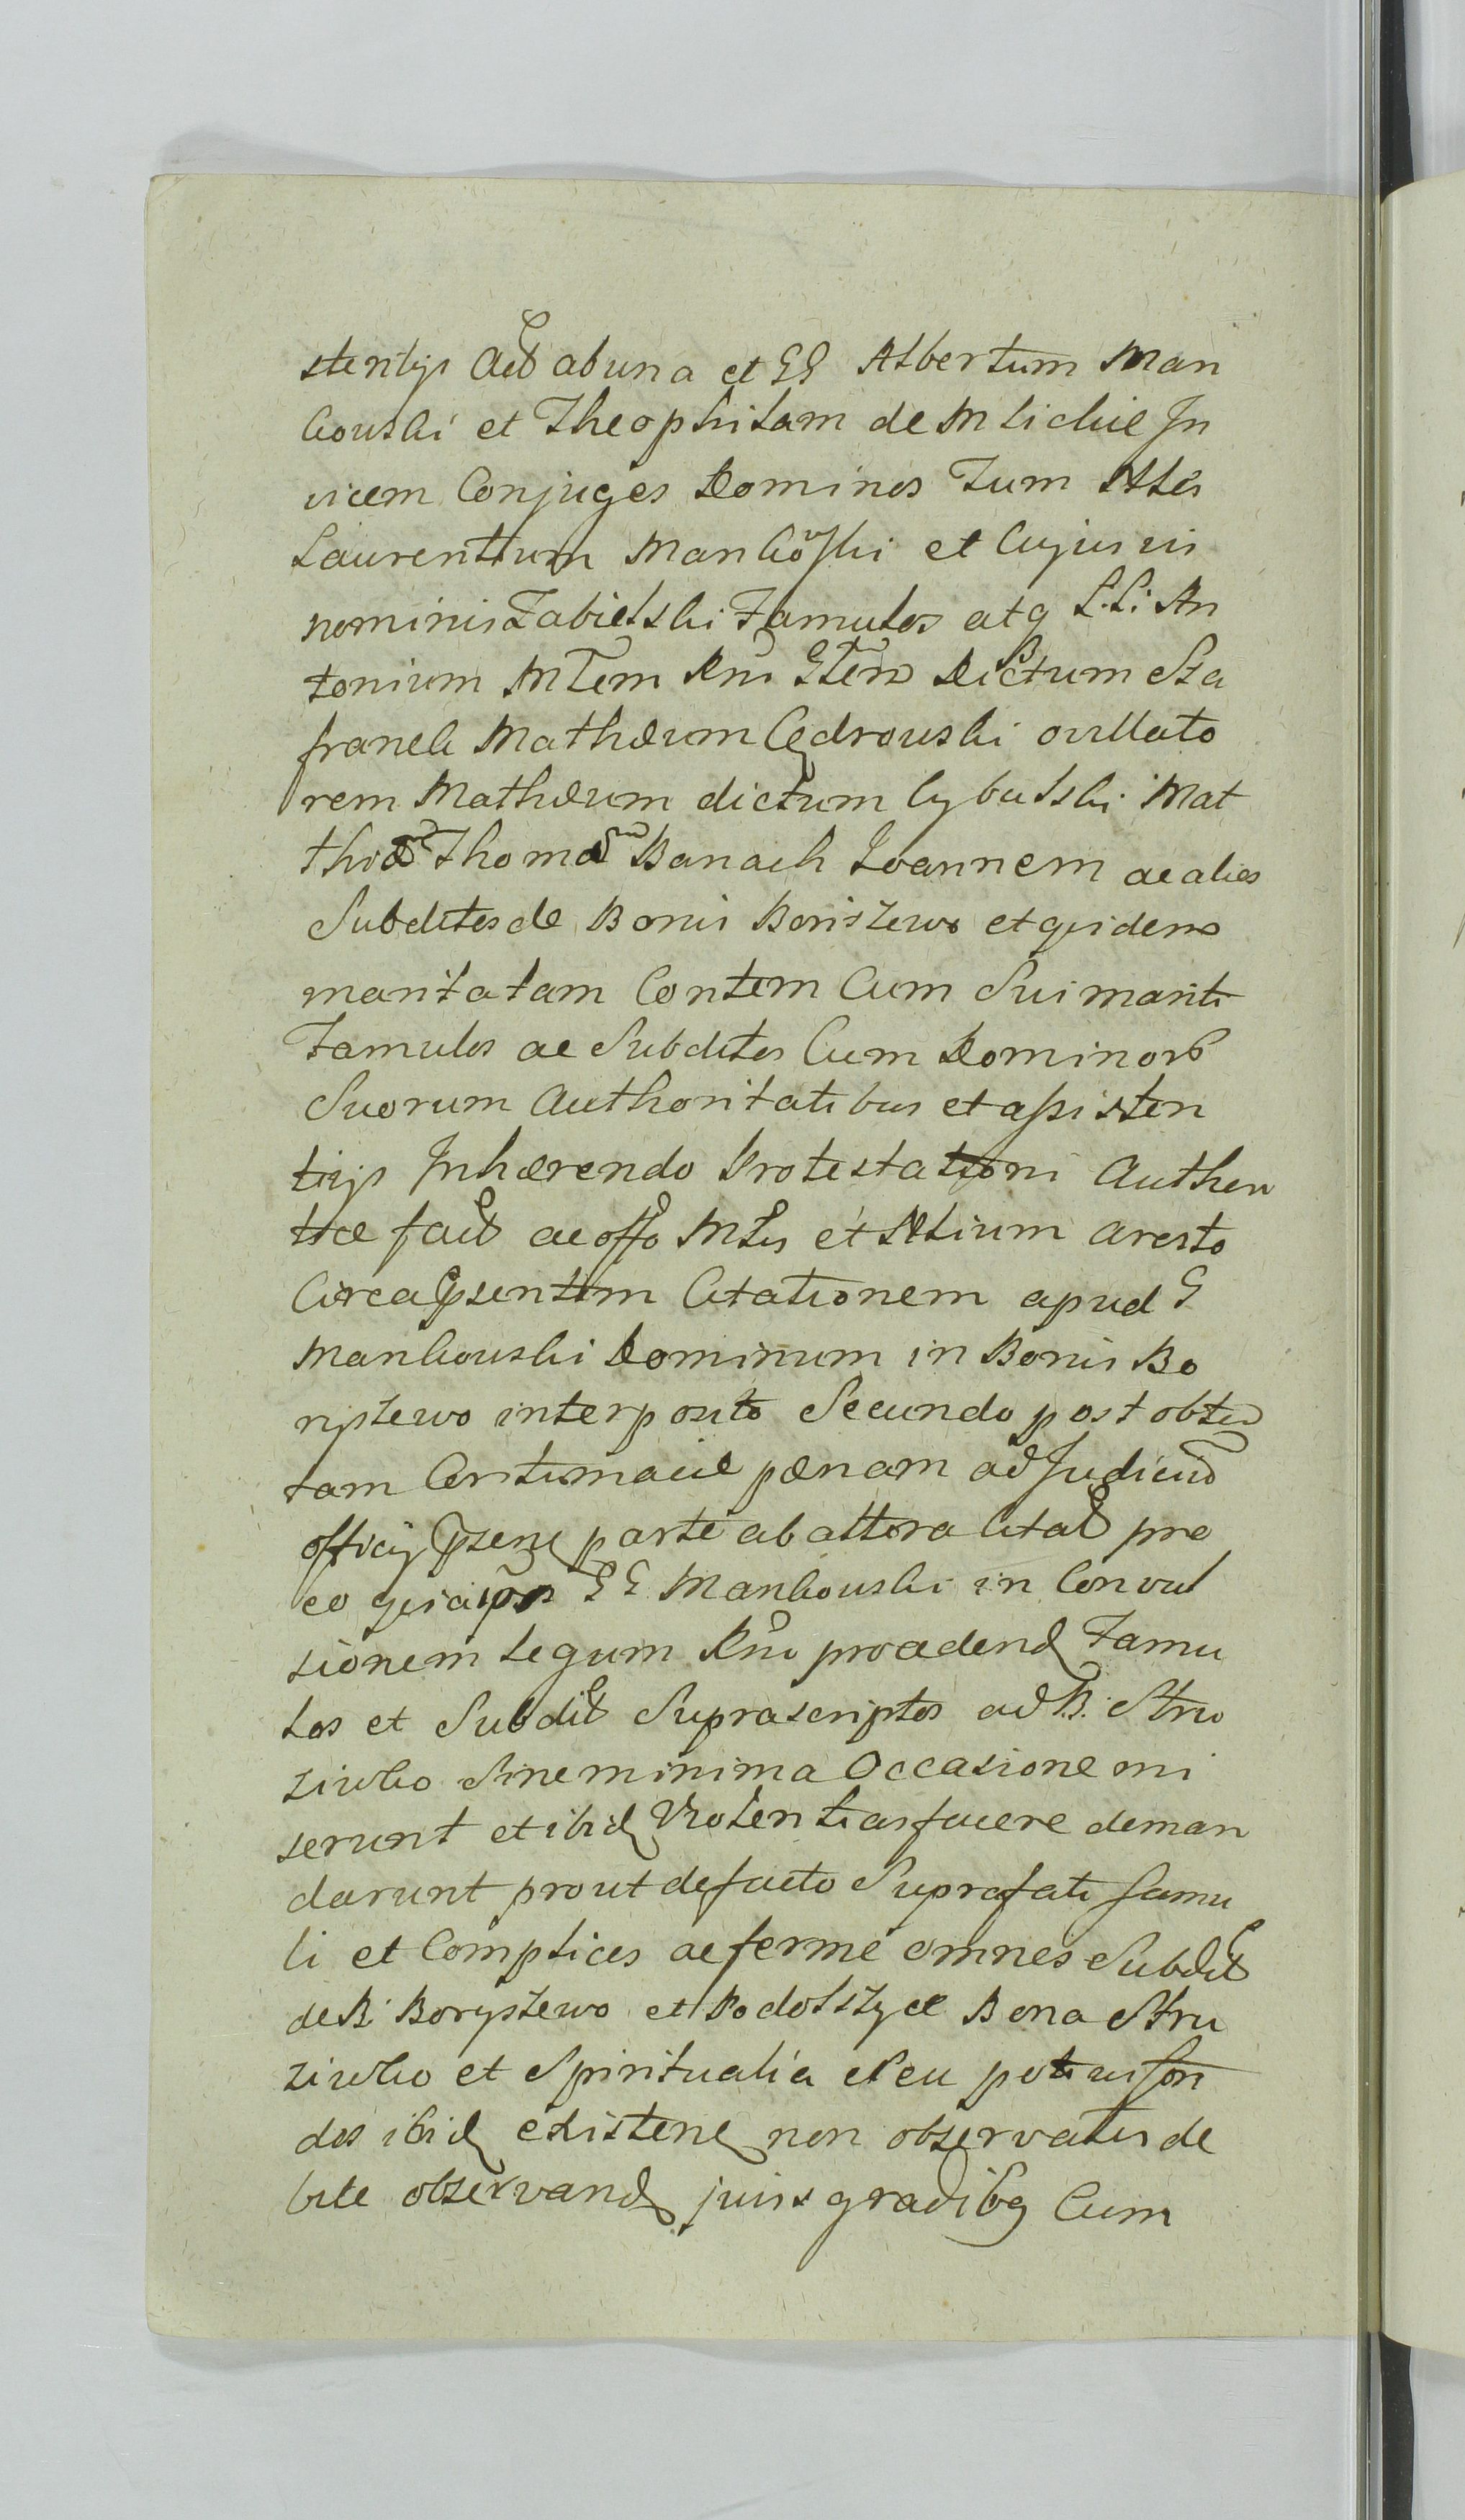 stentijs Act ab una et GG Albertum Man
kouski et Theophilam de Mlickie In
vicem Conjuges Dominos Tum Nlles
Laurentium Mankowski et Cujusvis
nominis Zabielski Famulos atq L.L. An
tonium Mltem Rni Gtern Dictum Sza
franek Mathæum Cędrouski ovillato
rem Mathæum dictum Cybulski Mat
thiæ Thomã Banach Joannem ac alios
Subditos de Bonis Boriszewo et quidem
maritatam Contem Cum Sui mariti
Famulos ac Subditos Cum Dominorß
Suorum Authoritatibus et assisten
tijs Inhærendo Protestationi Authen
ticæ fact ac offo Mltis et Nllium aresto
Circa psentem Citationem apud G
Mankouski Dominum in Bonis Bo
ryszewo interposito Secundo post obten
tam Contumaciæ pænam ad Judiciũ
officij psene parte ab altera Citat pro
eo quia ipsi GG Mankouski in Convul
sionem Legum Rni procedend Famu
los et Subdit Suprascriptos ad B. Stru
ziwko Sine minima Occasione mi
serunt et ibid Violentias facere deman
darunt prout de facto Suprafati famu
li et Complices ac ferme omnes Subdit
de B. Boryszewo et Podolszyce Bona Stru
ziwko et Spiritualia Seu potius fun
dos ibid existene non observatis de
bite observand juris gradibq Cum